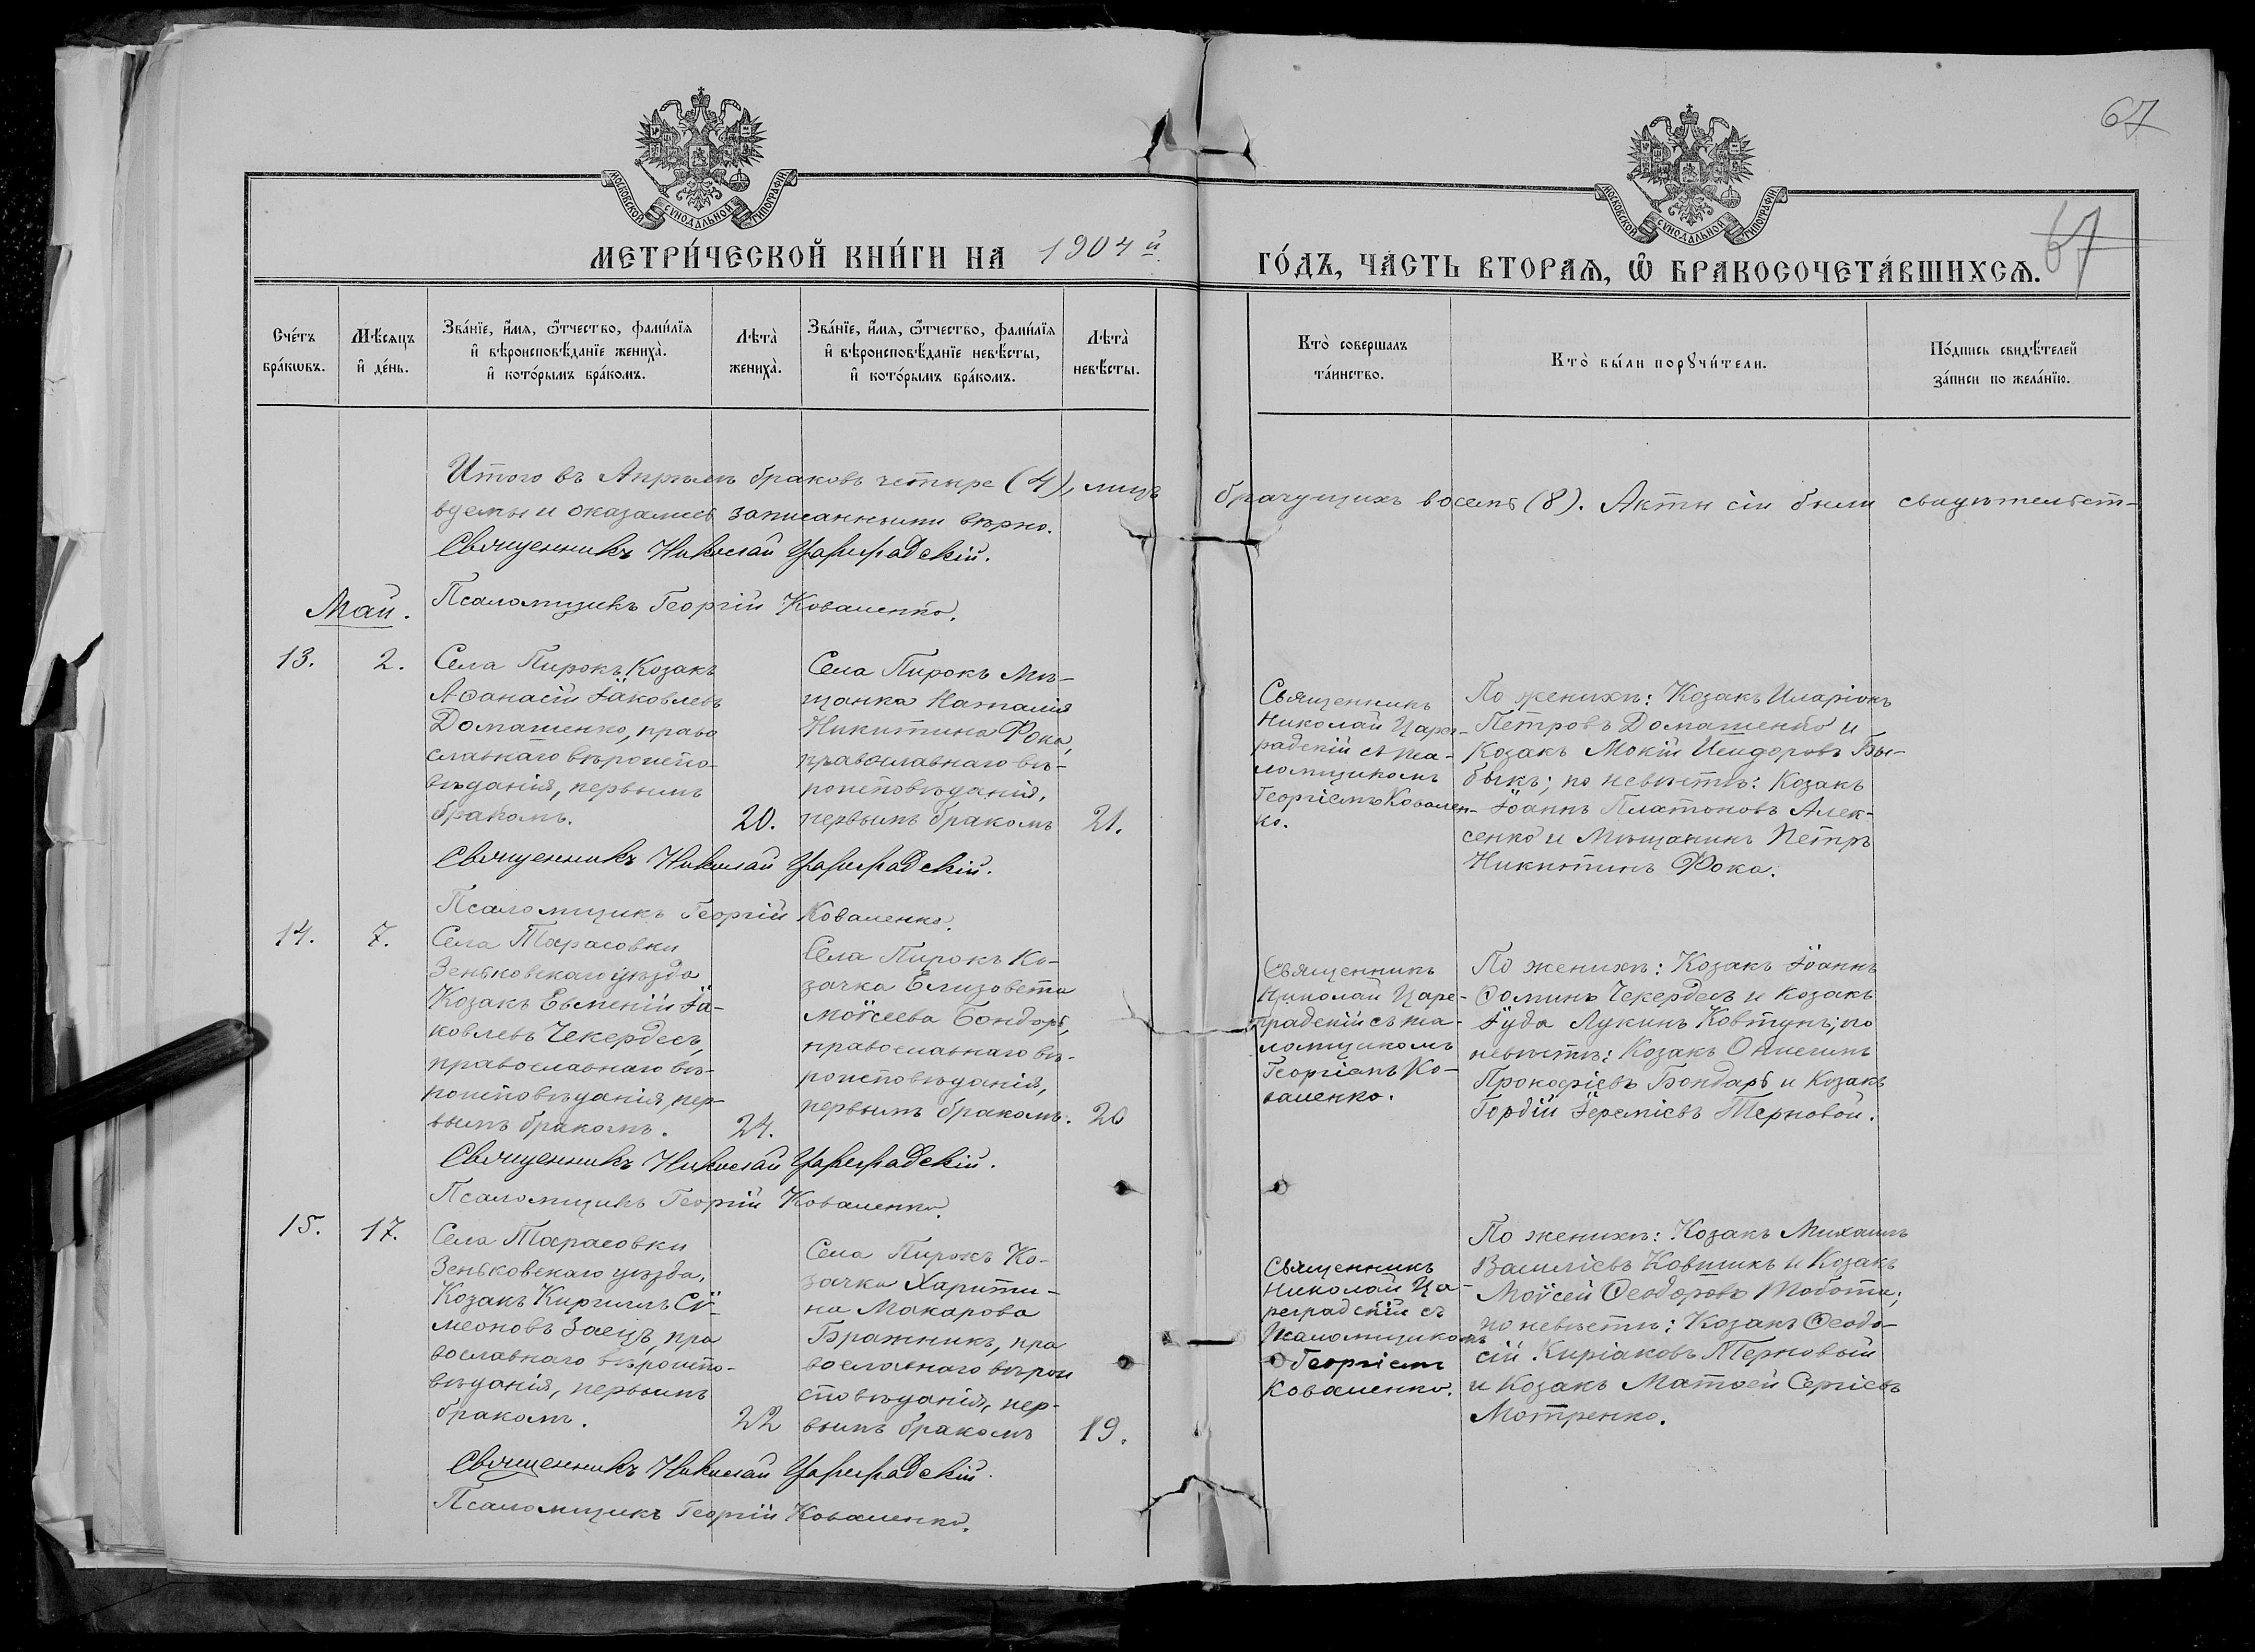 67
МОСКОВСКОЙ СѴНОДАЛЬНОЙ ТИПОГРАФІИ
МОСКОВСКОЙ СѴНОДАЛЬНОЙ ТИПОГРАФІИ
67
МЕТРИ́ЧЕСКОЙ КНИ́ГИ НА 1904й
ГО́ДЪ, ЧА́СТЬ ВТОРАѦ, Ѡ БРАКОСОЧЕТА́ВШИХСѦ.
Сче́тъ
бра́кѡвъ.
Мѣ́сяцъ
и҆ де́нь.
Зва́нїе, и҆́мя, ѻ҆́тчество, фами́лїя
и҆ вѣроисповѣ́данїе жениха̀.
и҆ кото́рымъ бра́комъ.
Лѣта̀
жениха̀.
Зва́нїе, и҆́мя, ѻ҆́тчество, фами́лїя
и҆ вѣроисповѣ́данїе невѣ́сты,
и҆ кото́рымъ бра́комъ.
Лѣта̀
невѣ́сты.
Кто̀ совершалъ
та́инство.
Кто̀ бы́ли порꙋчи́тели.
По́дпись свидѣ́телей
за́писи по жела́нїю.
Итого въ Апрѣлѣ браковъ четыре (4), лицъ брачущихъ восемь (8). Акты сіи были свидѣтельст-
вуемы и оказались записанными вѣрно.
Священникъ Николай Цареградскій.
Псаломщикъ Георгій Коваленко.
Май.
13.
2.
Села Пирокъ Козакъ
Аѳанасій Іаковлевъ
Домашенко, право
славнаго вѣроиспо-
вѣданія, первымъ
бракомъ.
20.
Села Пирокъ Мѣ-
щанка Наталія
Никитина Фока,
православнаго вѣ-
роисповѣданія,
первымъ бракомъ
21.
Священникъ
Николай Царег-
радскій съ пса-
ломщикомъ
Георгіемъ Ковален-
ко.
По женихѣ: Козакъ Иларіонъ
Петровъ Домашенко и
Козакъ Мокій Исидоровъ Бы-
быкъ; по невѣстѣ: Козакъ
Іоаннъ Платоновъ Алек-
сенко и Мѣщанинъ Петръ
Никитинъ Фока.
Священникъ Николай Цареградскій.
Псаломщикъ Георгій Коваленко.
14.
7.
Села Тарасовки
Зеньковскаго уѣзда
Козакъ Евменій Іа-
ковлевъ Чекердесъ,
православнаго вѣ-
роисповѣданія, пер-
вымъ бракомъ.
24.
Села Пирокъ Ко-
зачка Елизавета
Моѵсеева Бондарь,
православнаго вѣ-
роисповѣданія,
первымъ бракомъ.
20
Священникъ
Николай Царе-
градскій съ пса-
ломщикомъ
Георгіемъ Ко-
валенко.
По женихѣ: Козакъ Іоаннъ
Ѳоминъ Чекердесъ и Козакъ
Іуда Лукинъ Ковтунъ; по
невѣстѣ: Козакъ Онисимъ
Прокофіевъ Бондарь и Козакъ
Гордій Іереміевъ Терновой.
Священникъ Николай Цареградскій.
Псаломщикъ Георгій Коваленко.
15.
17.
Села Тарасовки
Зеньковскаго уѣзда,
Козакъ Кириллъ Сѵ-
меоновъ Заецъ, пра
вославнаго вѣроиспо-
вѣданія, первымъ
бракомъ.
22
Села Пирокъ Ко-
зачка Харити-
на Макарова
Бражникъ, пра
вославнаго вѣрои
сповѣданія, пер-
вымъ бракомъ
19.
Священникъ
Николай Ца-
реградскій съ
Псаломщикомъ
Георгіемъ
Коваленко.
По женихѣ: Козакъ Михаилъ
Василіевъ Ковшикъ и Козакъ
Моѵсей Ѳеодоровъ Тобота;
по невѣстѣ: Козакъ Ѳеодо-
сій Киріаковъ Терновый
и Козакъ Матѳей Сергіевъ
Мотренко.
Священникъ Николай Цареградскій.
Псаломщикъ Георгій Коваленко.